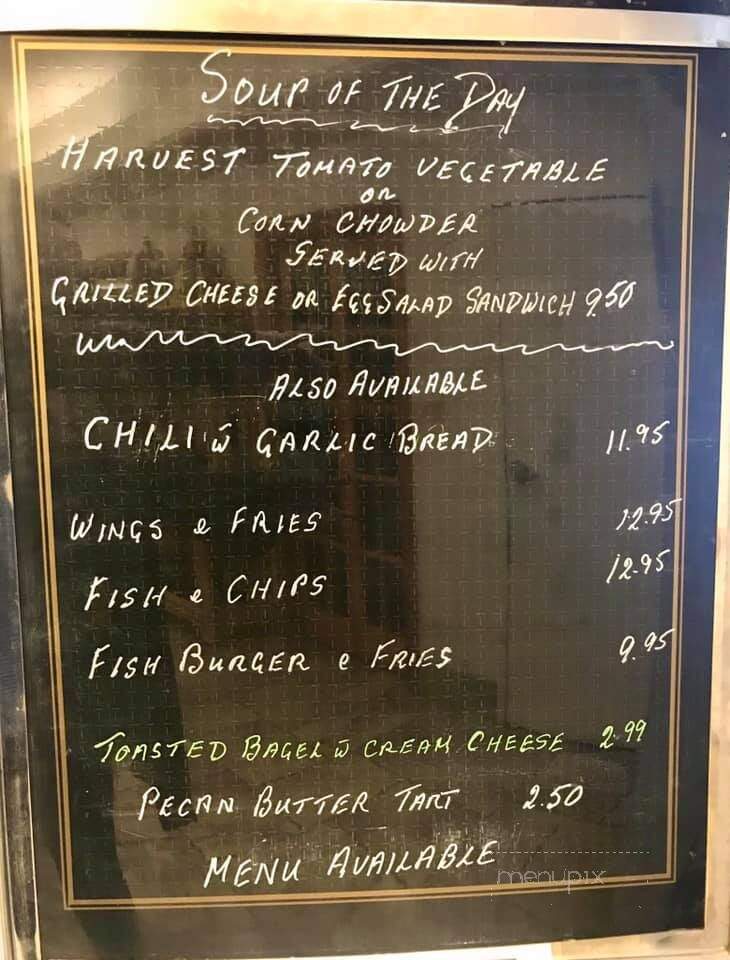 SOUP OF THE DAY
HARVEST TOMATO VEGETABLE
OR
CORN CHOWDER
SERVED WITH
GRILLED CHEESE OR EGG SALAD SANDWICH 9.50
ALSO AVAILABLE
CHILI w̄ GARLIC BREAD 11.95
WINGS & FRIES 12.95
FISH & CHIPS 12.95
FISH BURGER & FRIES 9.95
TOASTED BAGEL w̄ CREAM CHEESE 2.99
PECAN BUTTER TART 2.50
MENU AVAILABLE
menupix